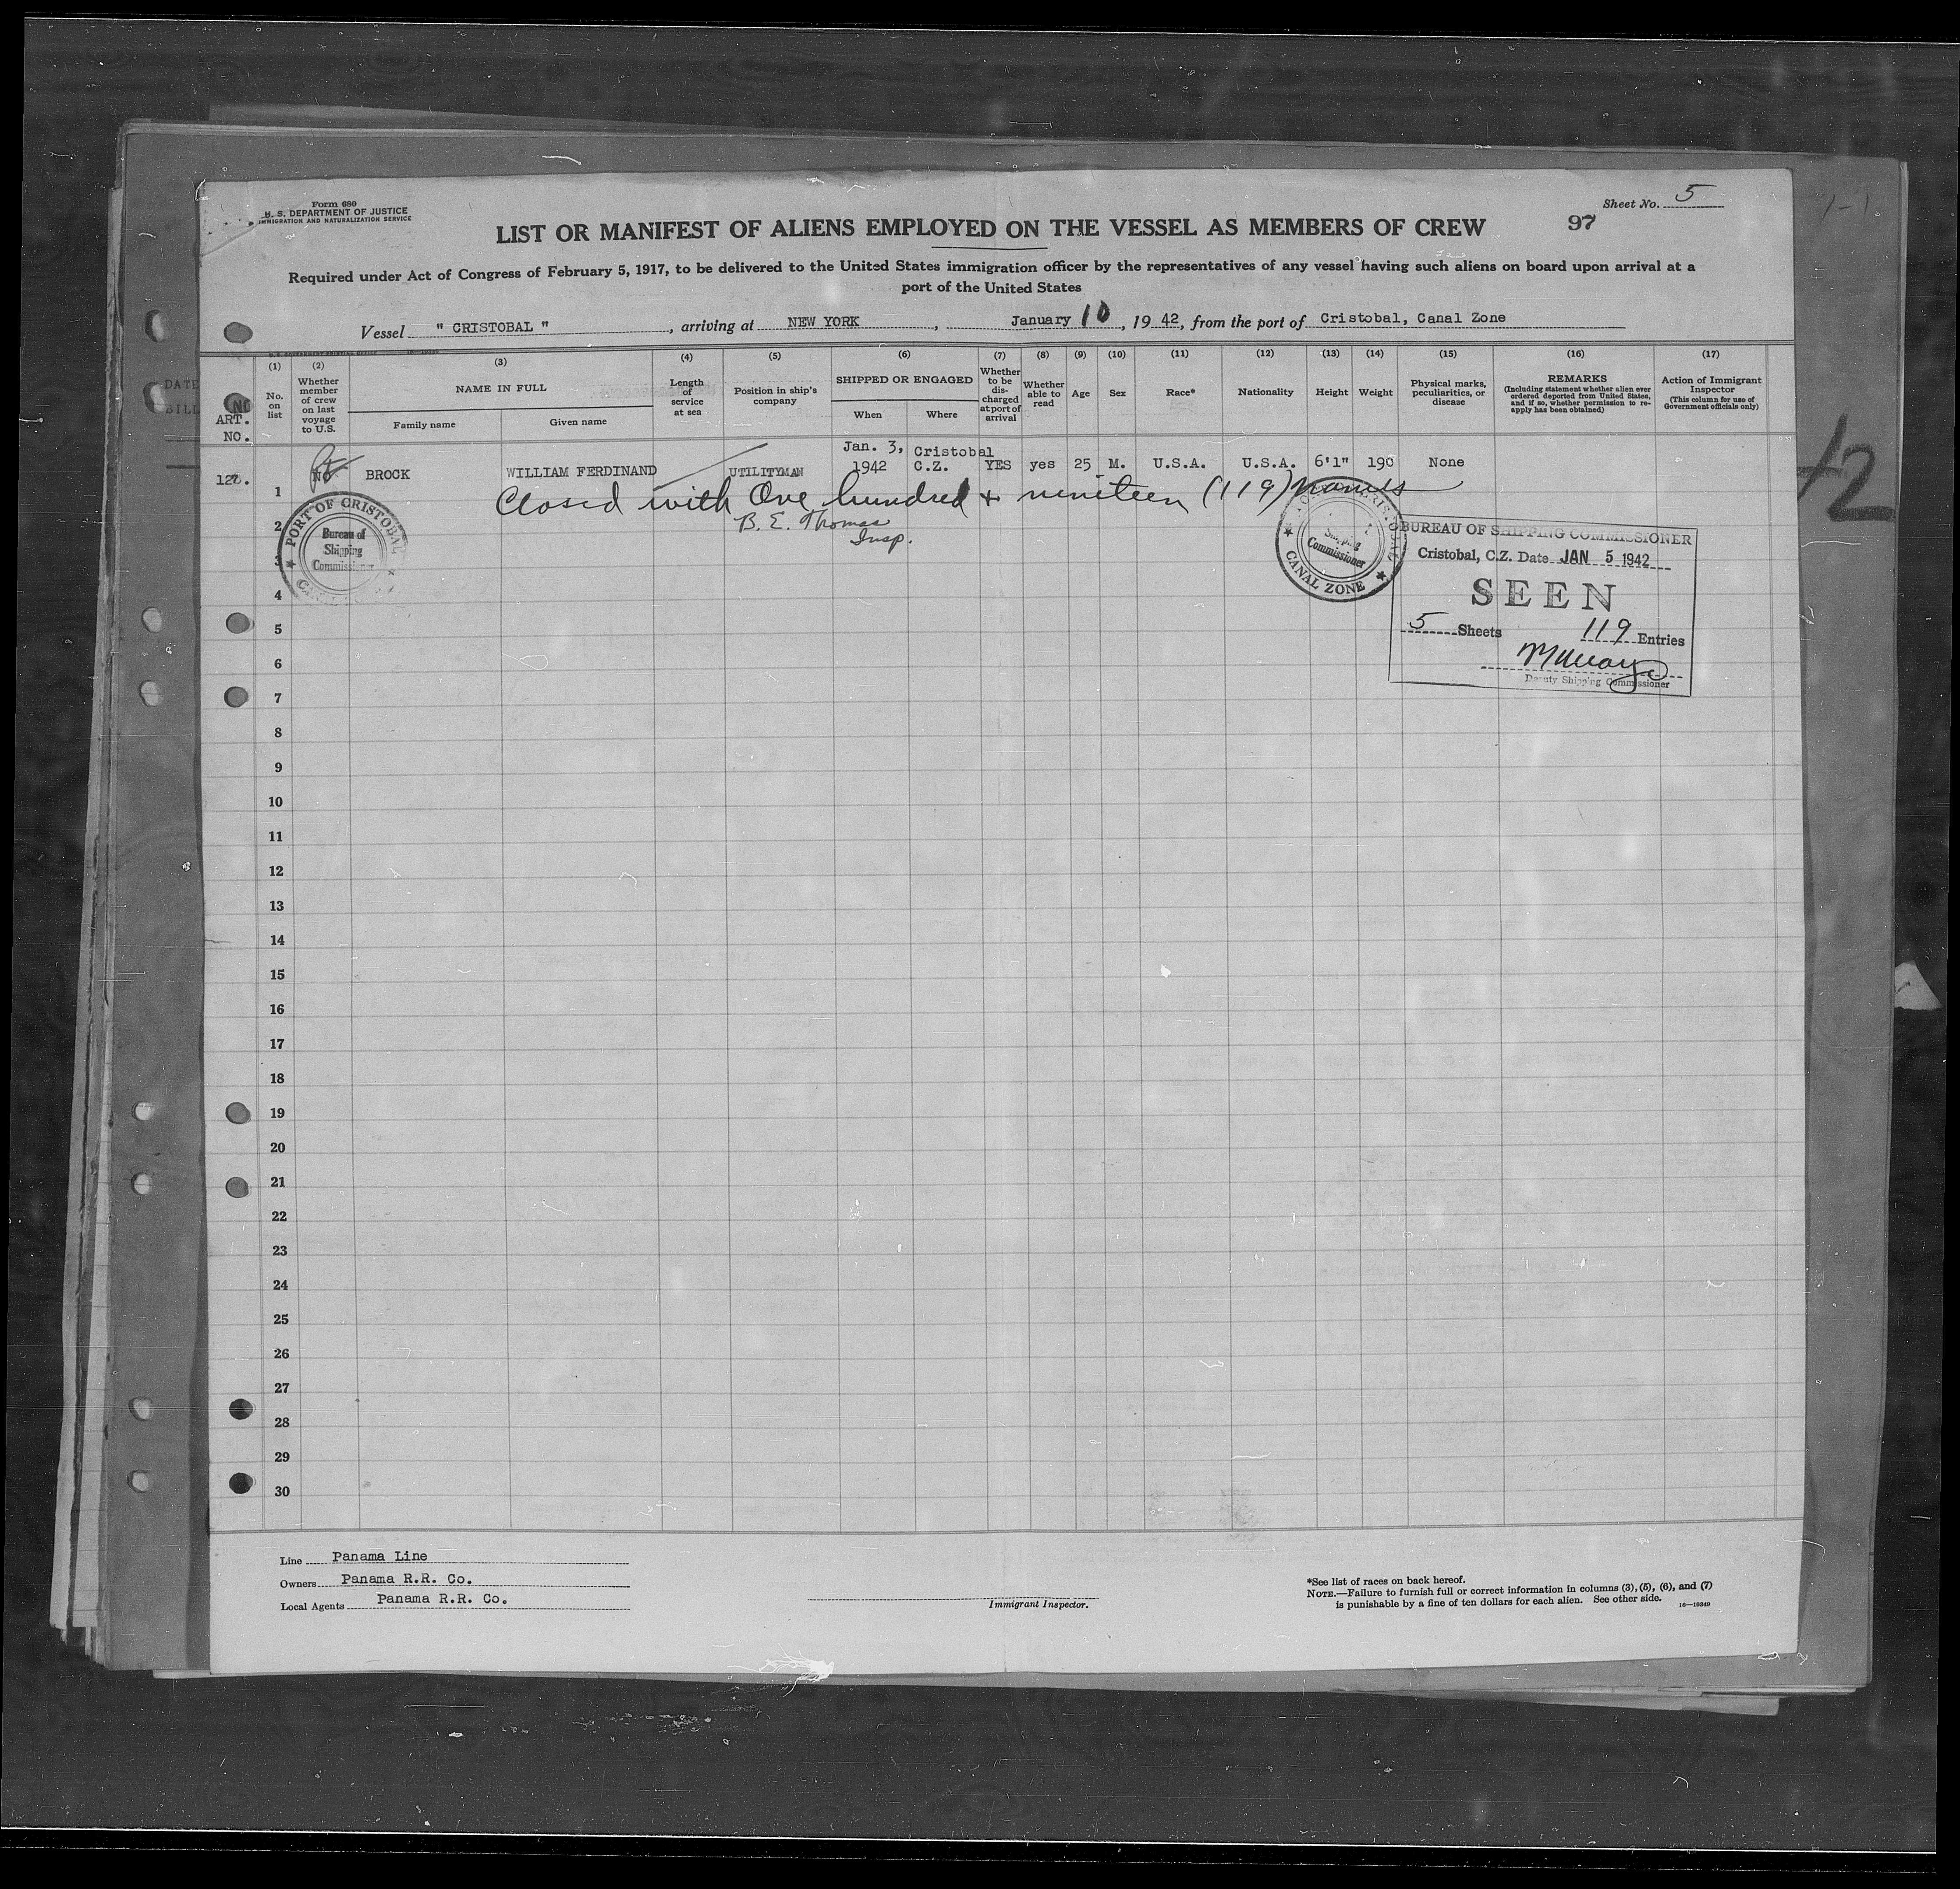 Form 680
U. S. DEPARTMENT OF JUSTICE
IMMIGRATION AND NATURALIZATION SERVICE
Sheet No. 5
97
LIST OR MANIFEST OF ALIENS EMPLOYED ON THE VESSEL AS MEMBERS OF CREW
Required under Act of Congress of February 5, 1917, to be delivered to the United States immigration officer by the representatives of any vessel having such aliens on board upon arrival at a
port of the United States
Vessel " CRISTOBAL " , arriving at NEW YORK , January 10 , 19 42, from the port of Cristobal, Canal Zone
DATE
BILL
ART.
NO.
(1) No. on list
(2) Whether member of crew on last voyage to U.S.
(3) NAME IN FULL
Family name
Given name
(4) Length of service at sea
(5) Position in ship's company
(6) SHIPPED OR ENGAGED
When
Where
(7) Whether to be discharged at port of arrival
(8) Whether able to read
(9) Age
(10) Sex
(11) Race*
(12) Nationality
(13) Height
(14) Weight
(15) Physical marks, peculiarities, or disease
(16) REMARKS
(Including statement whether alien ever ordered deported from United States, and if so, whether permission to reapply has been obtained)
(17) Action of Immigrant Inspector
(This column for use of Government officials only)
NO BROCK WILLIAM FERDINAND UTILITYMAN Jan. 3, 1942 Cristobal C.Z. YES yes 25 M. U.S.A. U.S.A. 6'1" 190 None
Closed with One hundred + nineteen (119) names
B. E. Thomas
Insp.
PORT OF CRISTOBAL
Bureau of
Shipping
Commissioner
Shipping
Commissioner
CANAL ZONE
BUREAU OF SHIPPING COMMISSIONER
Cristobal, C.Z. Date JAN 5 1942
SEEN
5 Sheets 119 Entries
Deputy Shipping Commissioner
42
1
2
3
4
5
6
7
8
9
10
11
12
13
14
15
16
17
18
19
20
21
22
23
24
25
26
27
28
29
30
Line Panama Line
Owners Panama R.R. Co.
Local Agents Panama R.R. Co.
Immigrant Inspector.
*See list of races on back hereof.
NOTE.—Failure to furnish full or correct information in columns (3), (5), (6), and (7)
is punishable by a fine of ten dollars for each alien. See other side.
16—19349